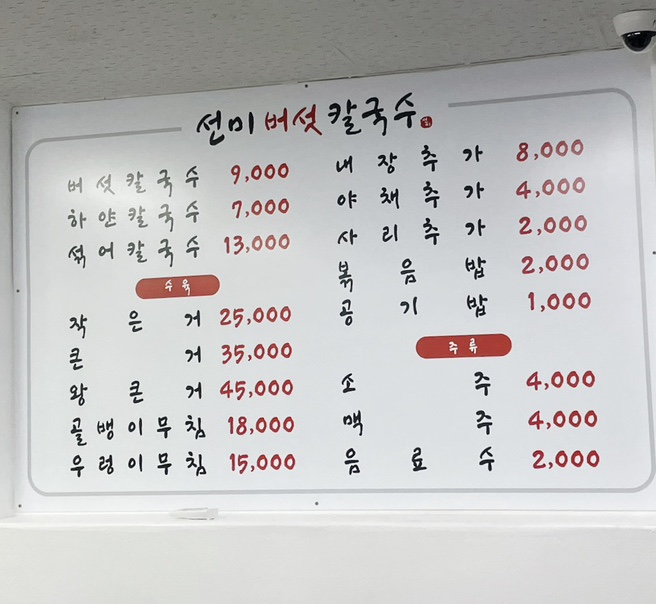 선미버섯칼국수
버섯칼국수 9,000
하얀칼국수 7,000
섞어칼국수 13,000
수육
작은거 25,000
큰거 35,000
왕큰거 45,000
골뱅이무침 18,000
우렁이무침 15,000
내장추가 8,000
야채추가 4,000
사리추가 2,000
볶음밥 2,000
공기밥 1,000
주류
소주 4,000
맥주 4,000
음료수 2,000